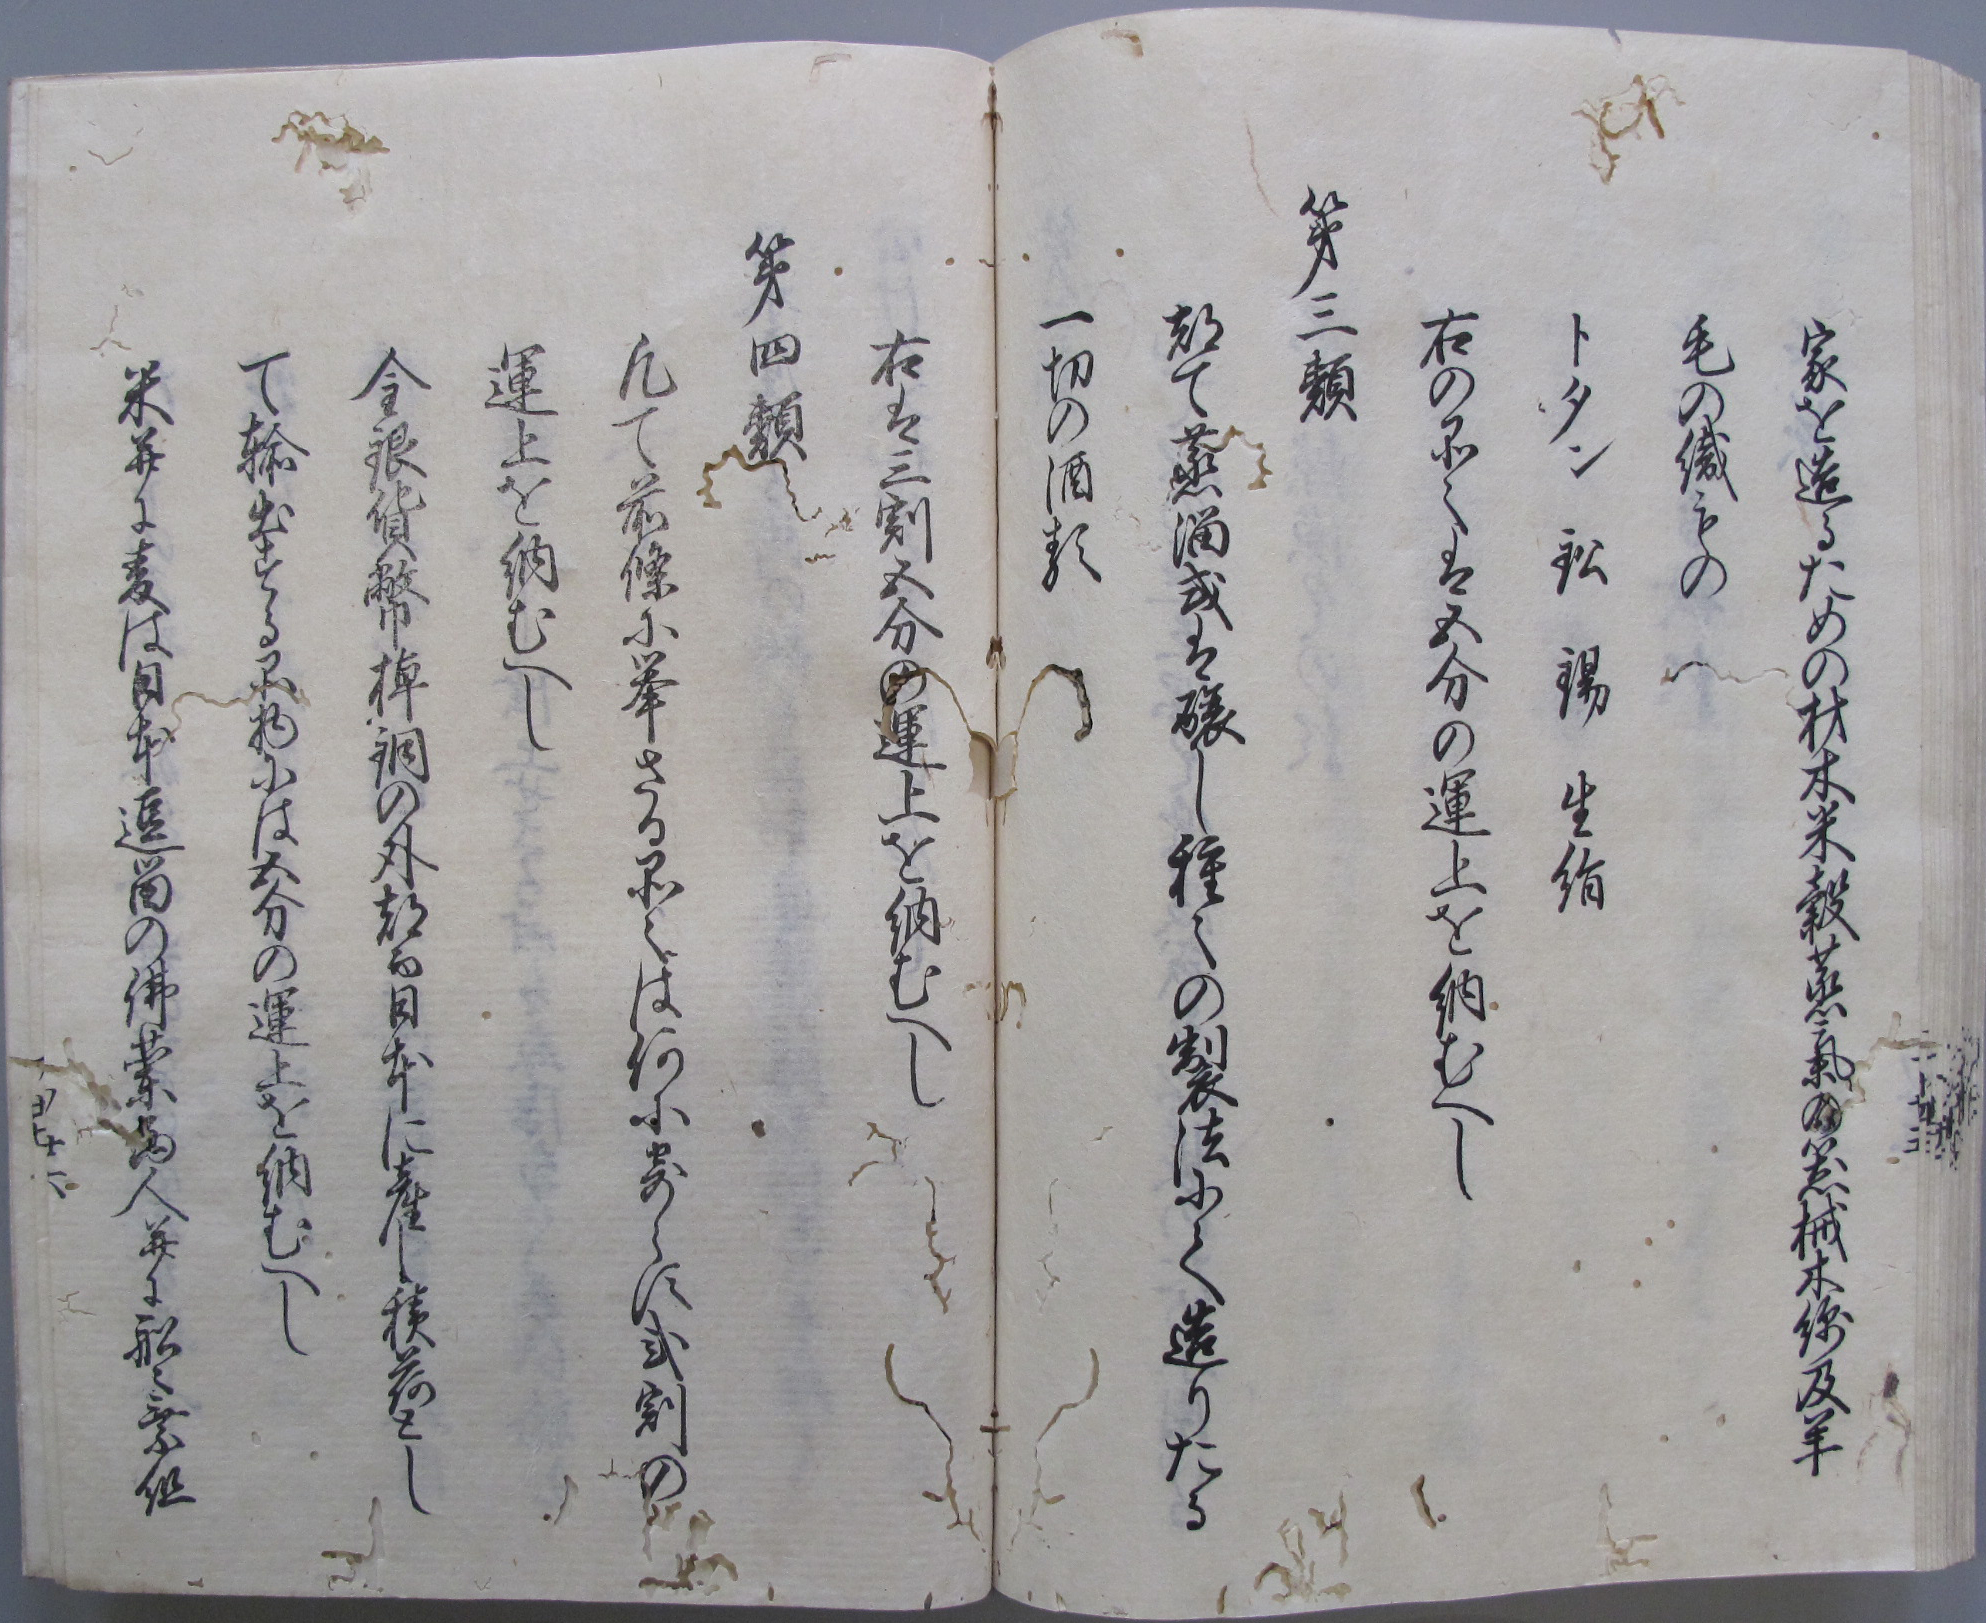 家を造るための材木米穀蒸氣の器械木綿及羊
毛の織もの
トタン 鉛 錫 生絹
右の品々は五分の運上を納むへし
第三類
都て蒸溜或は醸し種々の製法にて造りたる
一切の酒類
右は三割五分の運上を納むへし
第四類
凡て前條に挙さる品々は何に寄らす弐割の
運上を納むへし
金銀貨幣棹銅の外都而日本に産し積荷とし
て輸出する品物には五分の運上を納むへし
米并に麦は日本逗留の佛蘭西人并に船々乗組